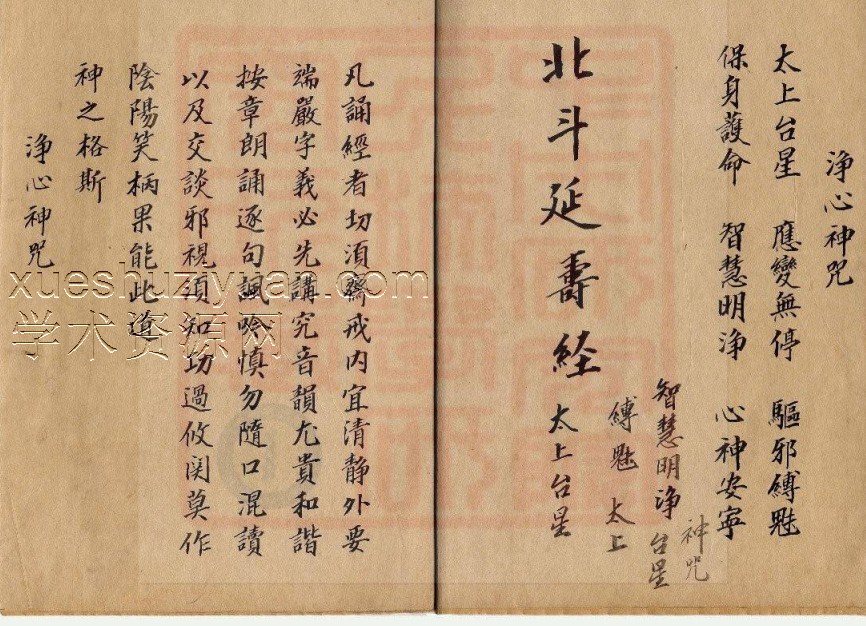 浄心神咒
太上台星 應變無停 驅邪縛魅
保身護命 智慧明浄 心神安寧
神咒
智慧明浄 台星
縛魅 太上
北斗延壽経 太上台星
凡誦經者切須齋戒内宜清静外要
端嚴字義必先講究音韻尤貴和諧
按章朗誦逐句諷唫慎勿隨口混讀
以及交談邪視須知功過攸関莫作
陰陽笑柄果能此道
神之格斯
浄心神咒
xueshuziyuan.com
学术资源网